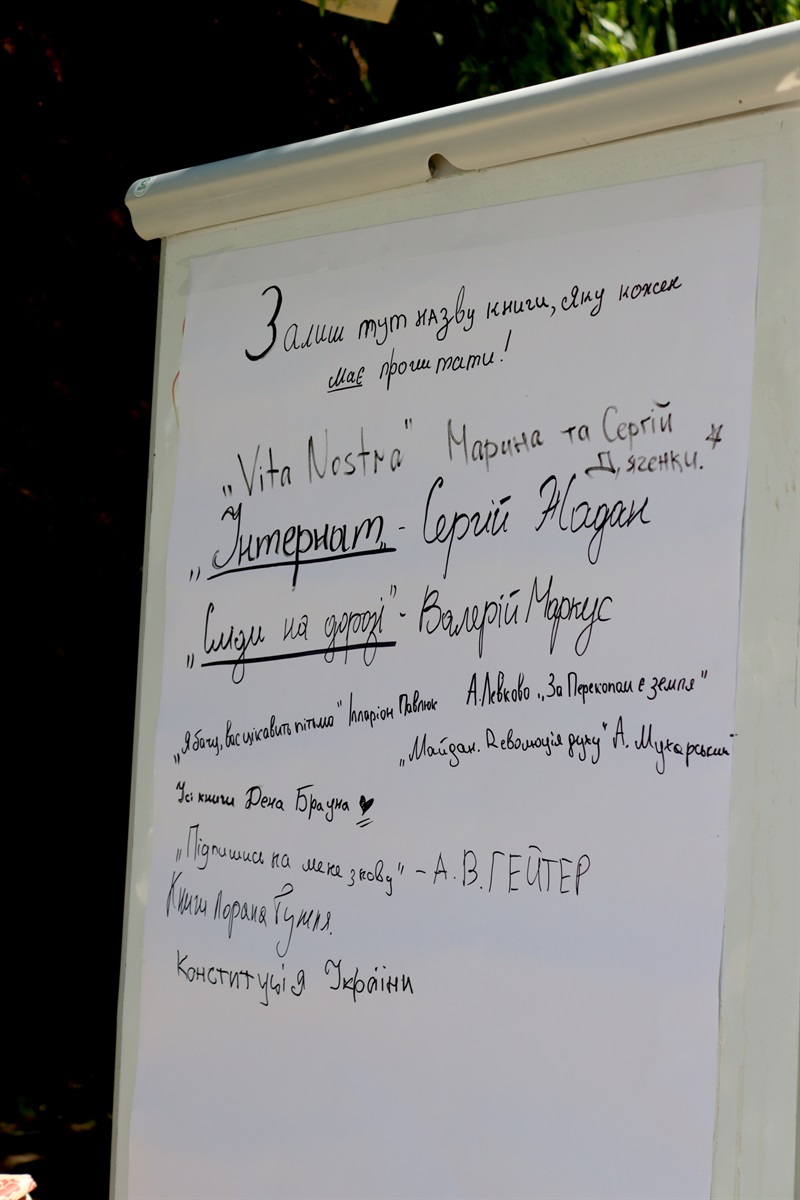 Залиш тут назву книги, яку кожен
має прочитати!
„Vita Nostra" Марина та Сергій
Дяченки.
„Інтернат„ - Сергій Жадан
„Сліди на дорозі" - Валерій Маркус
„Я бачу, вас цікавить пітьма" Ілларіон Павлюк А.Левкова „За Перекопом є земля"
„Майдан. Революція духу" А. Мухарський
Усі книги Дена Брауна
„Підпишись на мене знову" - А.В.ГЕЙГЕР
Книги Лорана Гунеля.
Конституція України